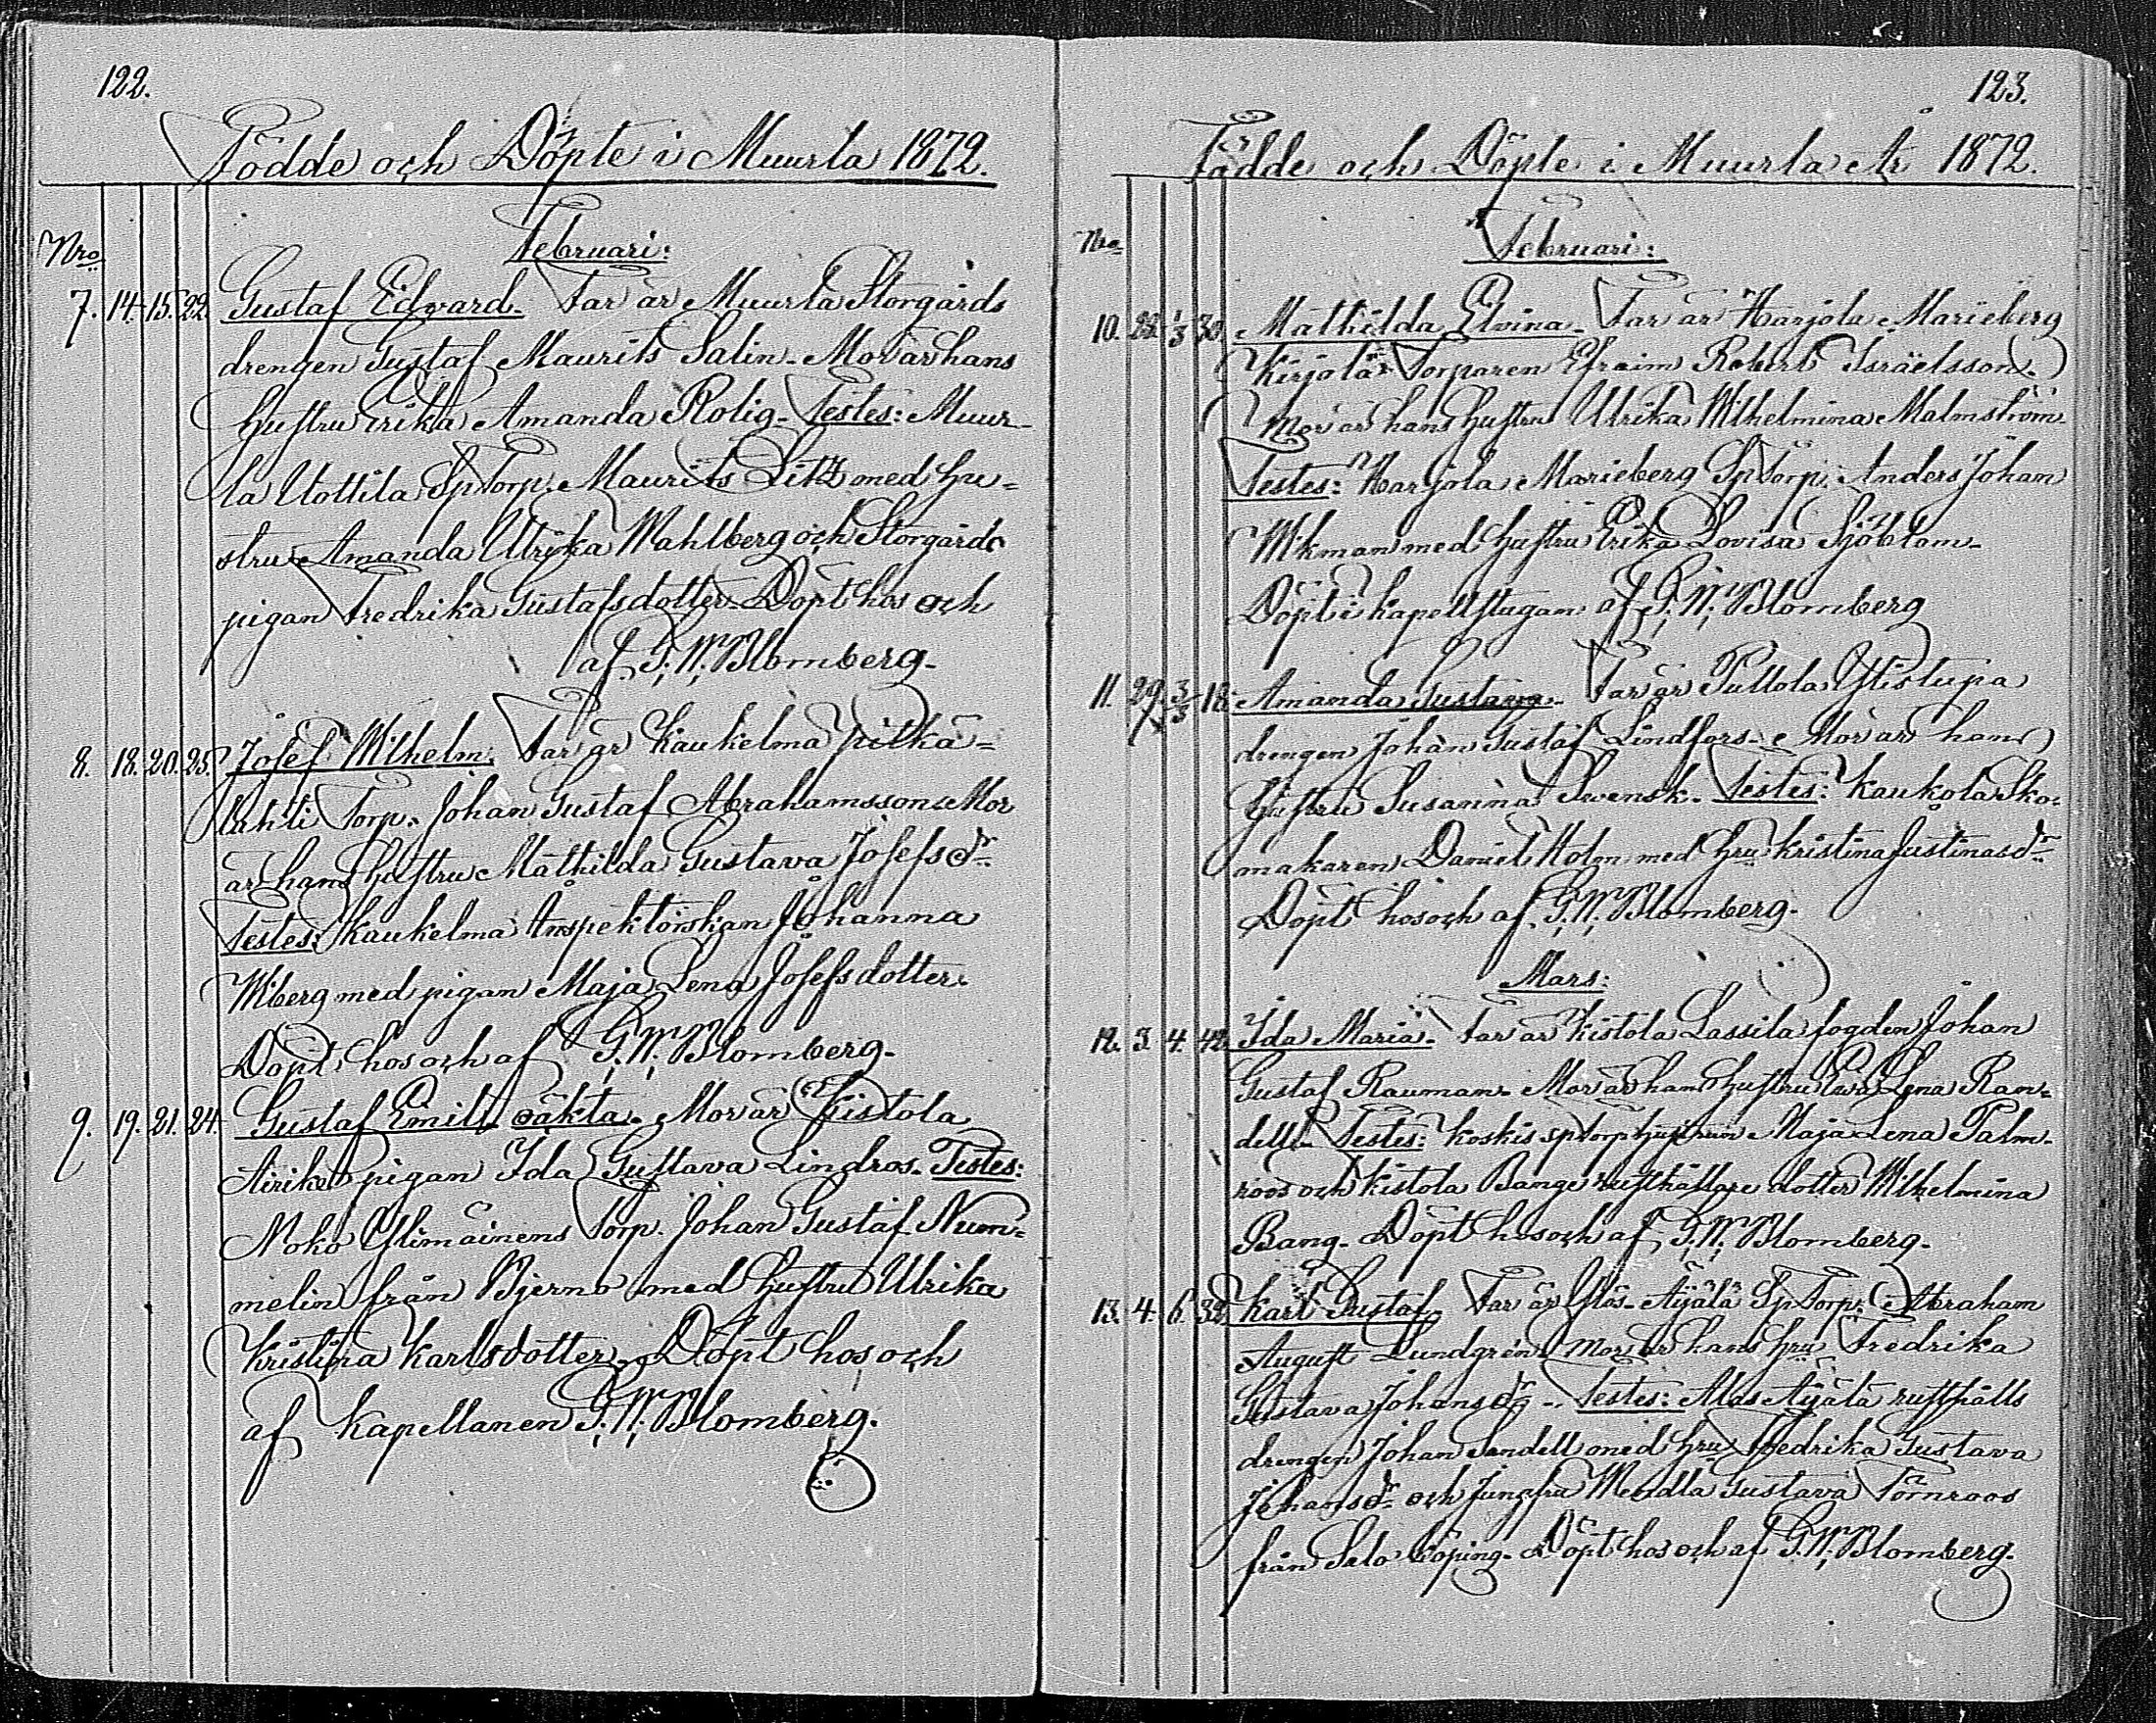 122.
Födde och Döpte i Muurla 1872.
Nro
Februari:
7. 14. 15. 22. Gustaf Edvard. Far är Muurla Storgårds
drengen Gustaf Maurits Salin. Mor är hans
hustru Erika Amanda Rolig. Testes: Muur-
la Uottila SpTorp. Maurits Litz med hu=
stru Amanda Ulrika Wahlberg och Storgårds
pigan Fredrika Gustafsdotter. Döpt hos och
af G. W. Blomberg.
8. 18. 20. 25. Josef Wilhelm. Far är Kaukelma pitkä=
lahti Torp. Johan Gustaf Abrahamsson. Mor
är hans hustru Mathilda Gustava Josefsdr.
Testes: Kaukelma Inspektorskan Johanna
Wiberg med pigan Maja Lena Josefsdotter.
Döpt hos och af G. W. Blomberg.
9. 19. 21. 24. Gustaf Emil oäkta. Mor är Kistola
Airika pigan Ida Gustava Lindros. Testes:
Moko Ylimäinens Torp. Johan Gustaf Num=
melin från Bjerno med hustru Ulrika
Kristina Karlsdotter. Döpt hos och
af Kapellanen G. W. Blomberg.
123.
Födde och Döpte i Muurla År 1872.
Nro
Februari:
10. 28. 1/3 30. Mathilda Elvina. Far är Harjola Marieberg
Kirjola Torparen Efraim Robert Israëlsson.
Mor är hans hustru Ulrika Wilhelmina Malmström.
Testes: Harjola Marieberg SpTorp. Anders Johan
Wikman med hustru Erika Lovisa Sjöblom.
Döpt i kapellstugan af G. W. Blomberg
11. 29. 3/3 18. Amanda Gustava. Far är Pullola Ylistupa
drengen Johan Gustaf Lindfors. Mor är hans
hustru Susanna Swensk. Testes: Kaukola Sko-
makaren Daniel Holm med hru Kristina Justinasdr.
Döpt hos och af G. W. Blomberg.
Mars:
12. 3. 4. 42. Ida Maria. Far är Kistola Lassila fogden Johan
Gustaf Rauman. Mor är hans hustru Eva Lena Ram=
dell. Testes: Koskis spTorp hustrun Maja Lena Palm-
roos och Kistola Bange rusthållare dotter Wilhelmina
Bang. Döpt hos och af G. W. Blomberg.
13. 4. 6. 32. Karl Gustaf. Far är Ylös-Äijälä SpTorp. Abraham
August Lundgrén mor är hans hru Fredrika
Gustava Johansdr. Testes: Alas Äijälä rusthålls
drengen Johan Sandell med hru Fredrika Gustava
Johansdr och Jungfru Mendla Gustava Törnroos
från Salo Köping. Döpt hos och af G. W. Blomberg.